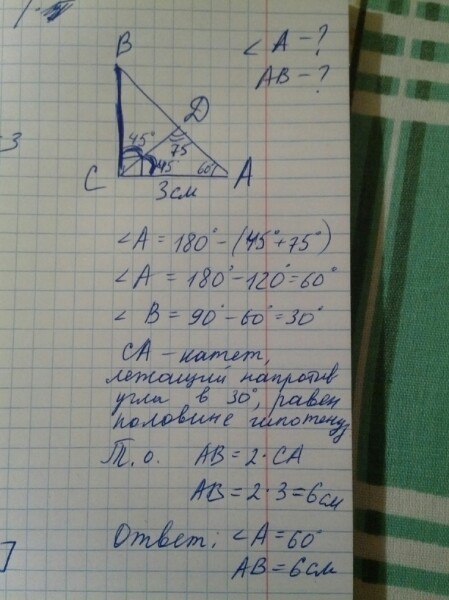 ∠ A - ?
AB - ?
B
D
45°
75
45°
60°
C
A
3см
∠A = 180° - (45°+75°)
∠A = 180° - 120° = 60°
∠ B = 90° - 60° = 30°
СА - катет,
лежащий напротив
угла в 30°, равен
половине гипотенузы
Т. о. AB = 2·CA
AB = 2·3 = 6см
Ответ: ∠A = 60°
AB = 6см